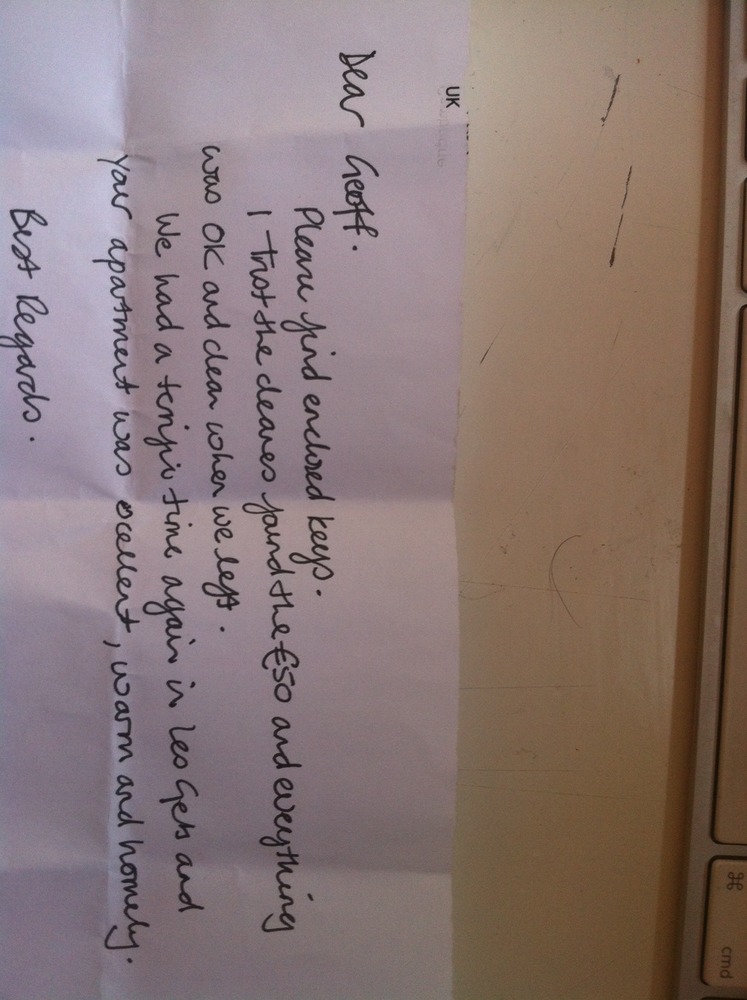 UK
Dear Geoff.
Please find enclosed keys.
I trust the cleaners found the €50 and everything
was OK and clean when we left.
We had a terrific time again in Les Gets and
your apartment was excellent, warm and homely.
Best Regards.
⌘
cmd